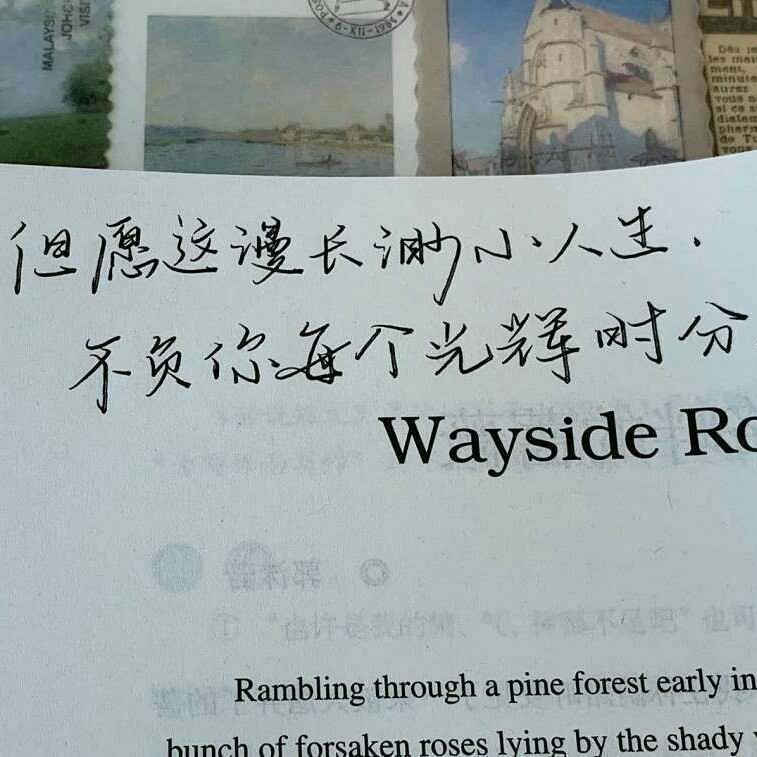 MALAYSI
JOHO
VISI
9-XII-1961
Dès le
les mai
ment,
minute
aurez
vous a
si ce s
diatem
pharm
de Tu
vous
但愿这漫长渺小人生,
不负你每个光辉时分
Wayside Ro
① "也许
Rambling through a pine forest early in
bunch of forsaken roses lying by the shady